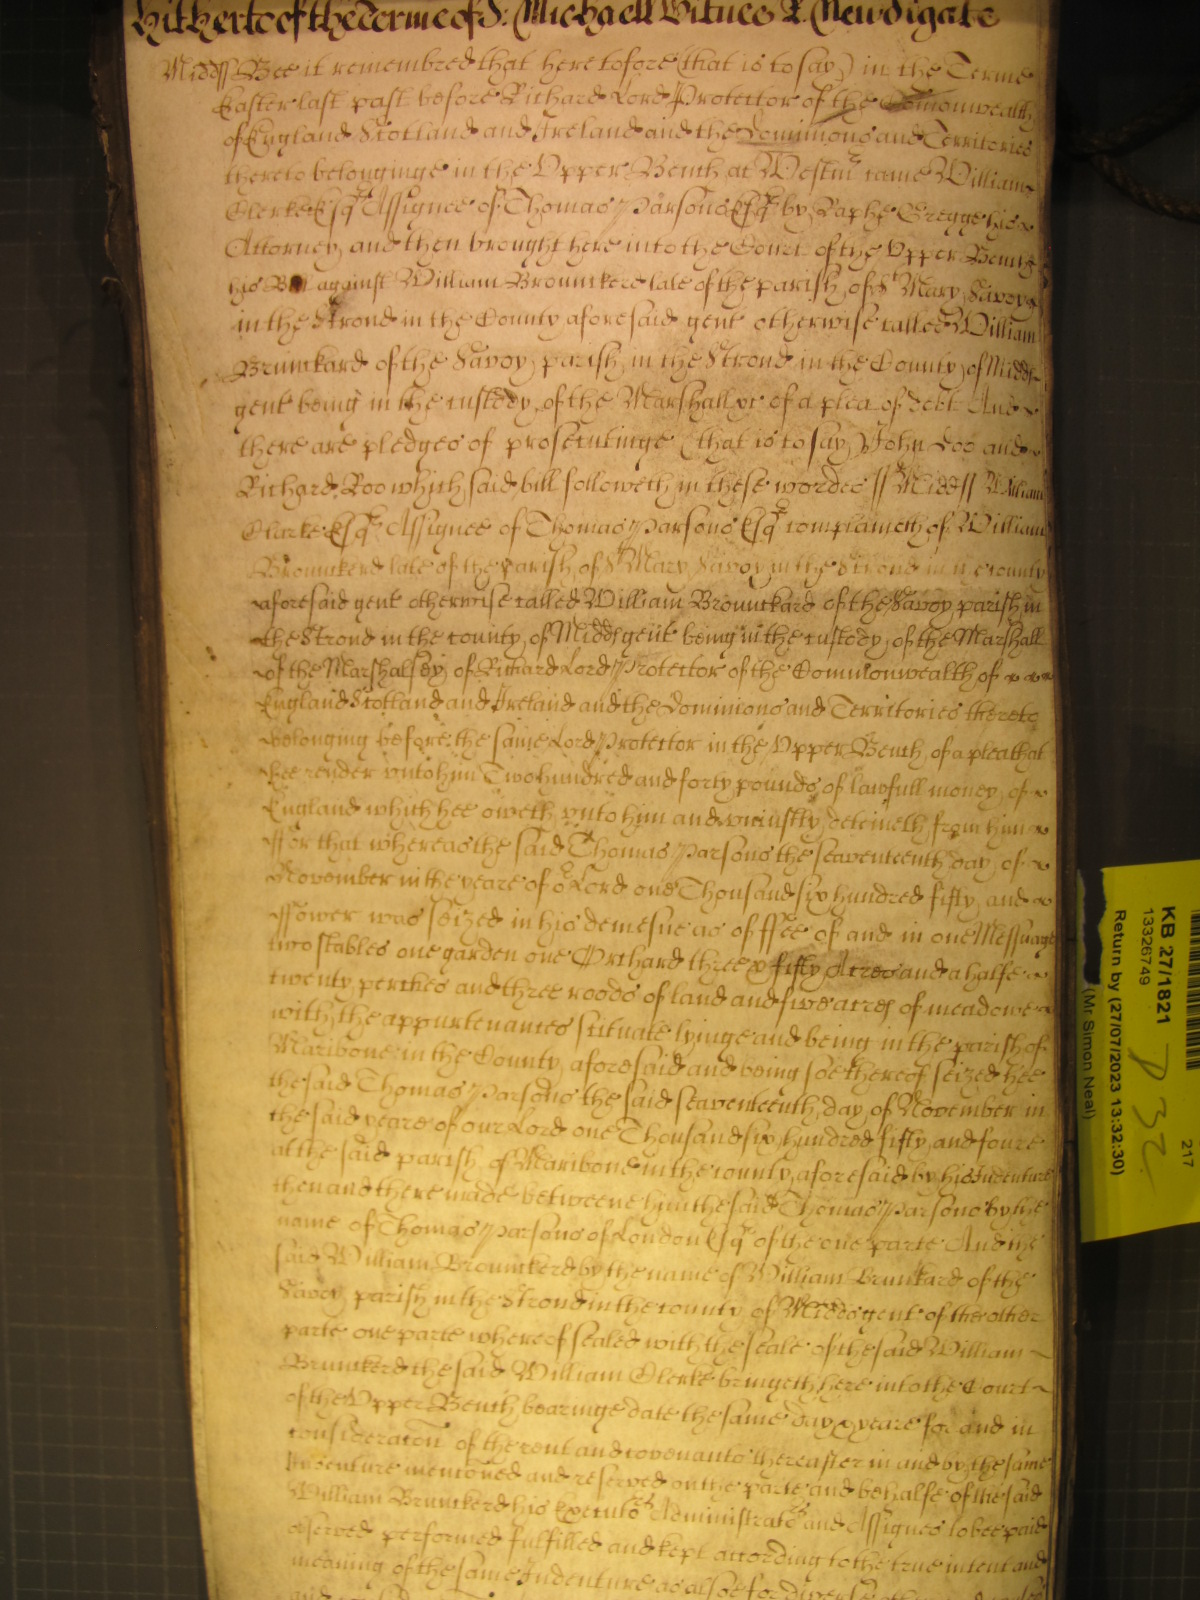 hitherto of the Terme of St: Michaell Witnes R: Newdigate
Midd ss Bee it remembred that heretofore (that is to say) in the Terme
Easter last past before Richard Lord Protector of the Comonwealth
of England Scotland and Ireland and the Dominions and Territories
thereto belonginge in the Upper Bench at Westm came William
Clerke Esqr Assignee of Thomas Parsons Esqr by Raphe Gregge his
Attorney and then brought here into the Court of the Upper Bench
his Bill against William Brounckerd late of the parish of St Mary Savoy
in the Strond in the County aforesaid gent otherwise called William
Brunckard of the Savoy parish in the Strond in the County of Midds
gent being in the custody of the Marshall &c of a plea of debt And
there are pledges of prosecutinge (that is to say) John Doo and
Richard Roo which said bill followeth in these wordes ss Midd ss William
Clarke Esqr Assignee of Thomas Parsons Esqr complaineth of William
Brounckerd late of the parish of St Mary Savoy in the Strond in the county
aforesaid gent otherwise called William Brounckard of the Savoy parish in
the Strond in the county of Midds gent being in the custody of the Marshall
of the Marshalsey of Richard Lord Protector of the Commonwealth of
England Scotland and Ireland and the Dominions and Territories thereto
belonging before the same Lord Protector in the Upper Bench of a plea that
hee render unto him Two hundred and forty pounds of lawfull money of
England which hee oweth unto him and uniustly deteineth from him
ffor that whereas the said Thomas Parsons the seaventeenth day of
November in the yeare of or Lord one Thousand six hundred fifty and
ffower was seized in his demesne as of ffee of and in one Messuage
two stables one garden one Orchard three & fifty Acres and a halfe
twenty perches and three roods of land and five acres of meadowe
with the appurtenances scituate lyinge and being in the parish of
Maribone in the County aforesaid and being soe thereof seized hee
the said Thomas Parsons the said seaventeenth day of November in
the said yeare of our Lord one Thousand six hundred fifty and foure
at the said parish of Maribone in the county aforesaid by his Indenture
then and there made betweene him the said Thomas Parsons by the
name of Thomas Parsons of London Esqr of the one parte And the
said William Brounckerd by the name of William Brunkard of the
Savoy parish in the Strond in the county of Midds gent of the other
parte one parte whereof sealed with the seale of the said William
Brunckerd the said William Clerke bringeth here into the Court
of the Upper Bench bearinge date the same day & yeare for and in
consideracon of the rent and covenants thereafter in and by the same
Indenture menconed and reserved on the parte and behalfe of the said
William Brunckerd his Executors Administrators and Assignes to bee paid
observed performed fulfilled and kept according to the true intent and
meaning of the same Indenture as alsoe for diverse
KB 27/1821
13326749
217
Return by (27/07/2023 13:32:30)
(Mr Simon Neal)
P 32